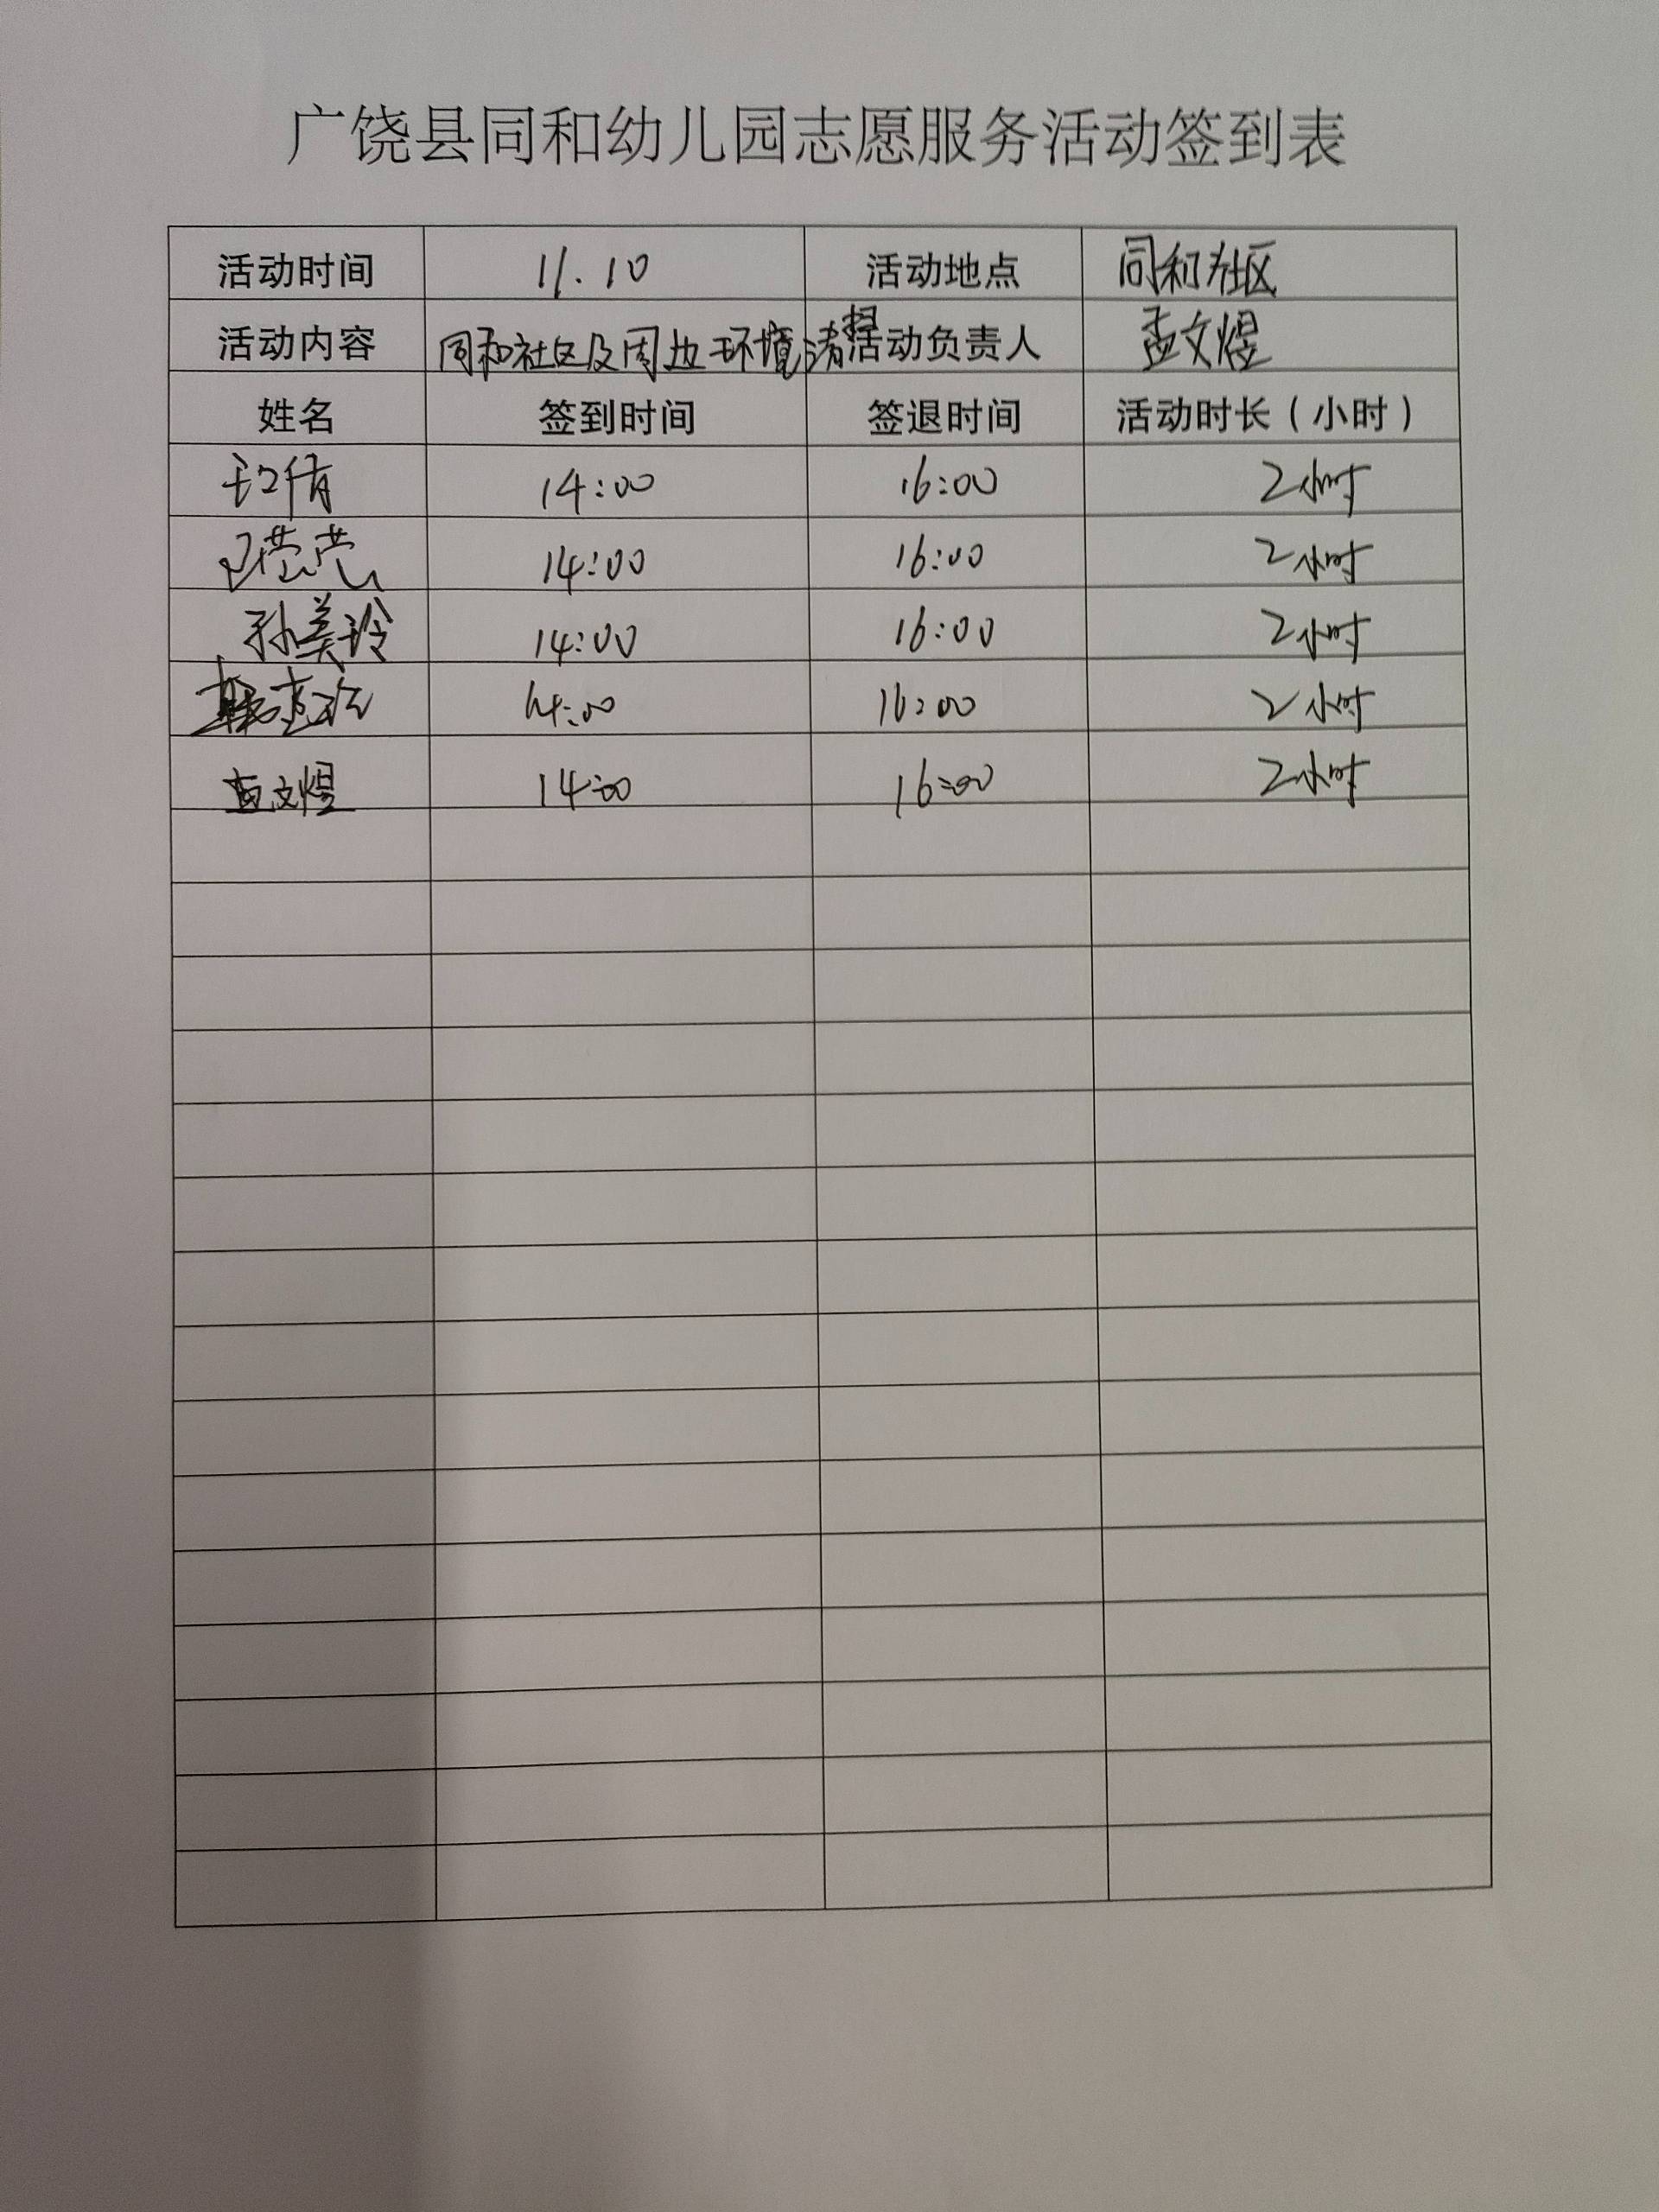 广饶县同和幼儿园志愿服务活动签到表
活动时间 11.10 活动地点 同和社区
活动内容 同和社区及周边环境清扫 活动负责人 孟文煜
姓名 签到时间 签退时间 活动时长（小时）
14:00 16:00 2小时
14:00 16:00 2小时
孙美玲 14:00 16:00 2小时
14:00 16:00 2小时
孟文煜 14:00 16:00 2小时